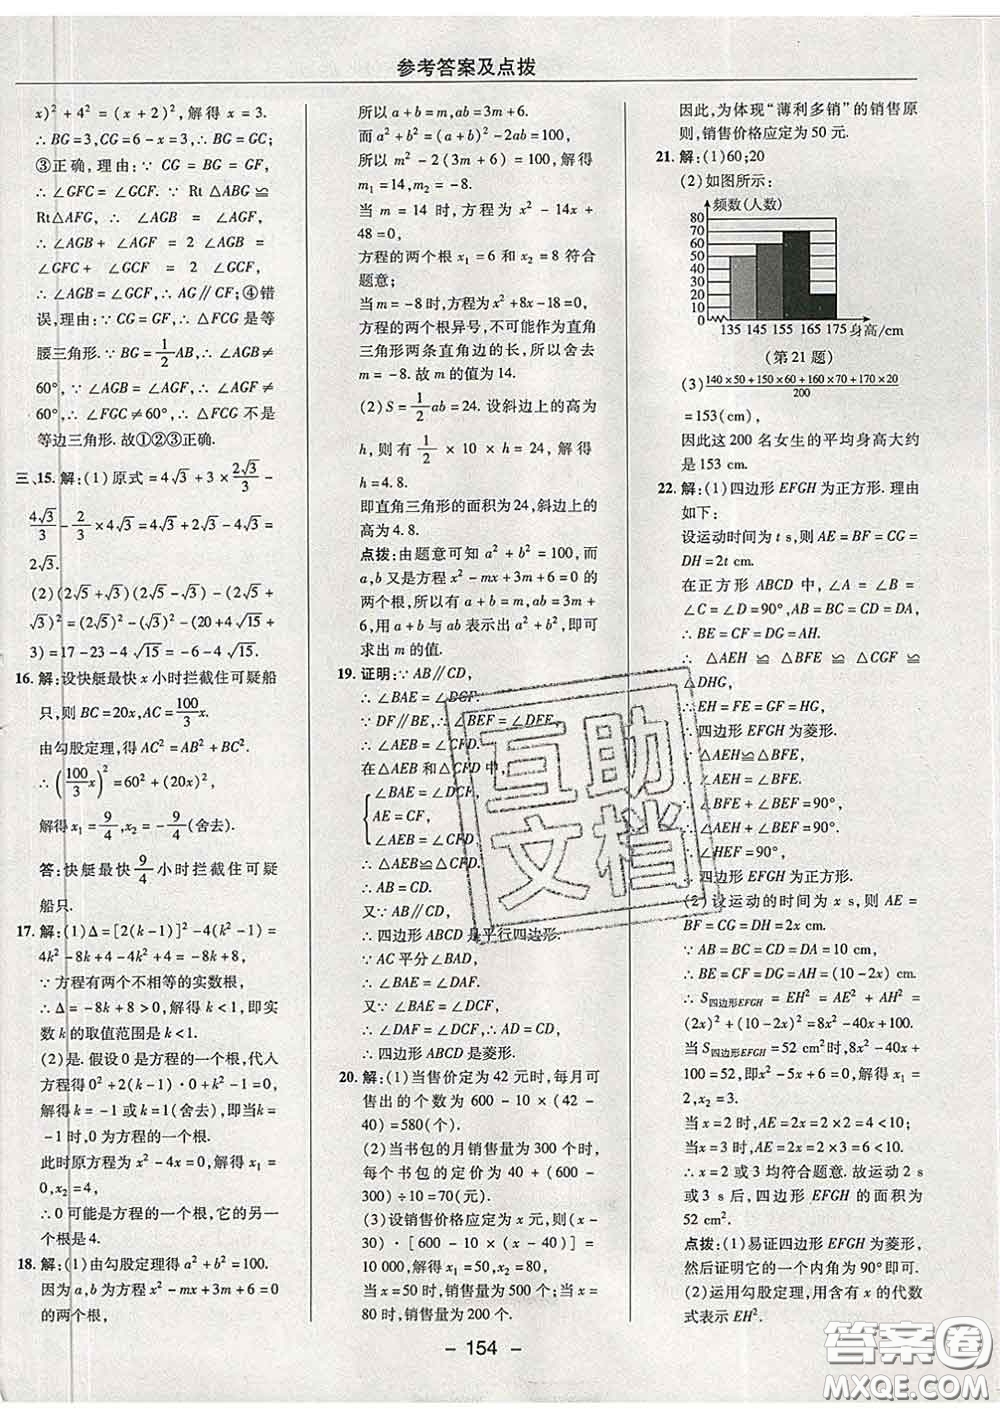 参考答案及点拨
x)² + 4² = (x + 2)², 解得 x = 3.
∴ BG = 3, CG = 6 - x = 3. ∴ BG = GC;
③正确, 理由: ∵ CG = BG = GF,
∴ ∠GFC = ∠GCF. ∵ Rt △ABG ≌
Rt△AFG, ∴ ∠AGB = ∠AGF,
∴ ∠AGB + ∠AGF = 2 ∠AGB =
∠GFC + ∠GCF = 2 ∠GCF,
∴ ∠AGB = ∠GCF, ∴ AG∥CF; ④错
误, 理由: ∵ CG = GF, ∴ △FCG 是等
腰三角形. ∵ BG = 1/2 AB, ∴ ∠AGB ≠
60°, ∵ ∠AGB = ∠AGF, ∴ ∠AGF ≠
60°, ∴ ∠FGC ≠ 60°, ∴ △FCG 不是
等边三角形. 故①②③正确.
三、15. 解: (1) 原式 = 4√3 + 3 × 2√3/3 -
4√3/3 - 2/3 × 4√3 = 4√3 + 2√3 - 4√3 =
2√3.
(2)(2√5 + √3)(2√5 - √3) - (2√5 +
√3)² = (2√5)² - (√3)² - (20 + 4√15 +
3) = 17 - 23 - 4√15 = -6 - 4√15.
16. 解: 设快艇最快 x 小时拦截住可疑船
只, 则 BC = 20x, AC = 100/3 x.
由勾股定理, 得 AC² = AB² + BC².
∴ (100/3 x)² = 60² + (20x)².
解得 x₁ = 9/4, x₂ = -9/4 (舍去).
答: 快艇最快 9/4 小时拦截住可疑
船只.
17. 解: (1)Δ = [2(k - 1)]² - 4(k² - 1) =
4k² - 8k + 4 - 4k² + 4 = -8k + 8,
∵ 方程有两个不相等的实数根,
∴ Δ = -8k + 8 > 0, 解得 k < 1, 即实
数 k 的取值范围是 k < 1.
(2)是. 假设 0 是方程的一个根, 代入
方程得 0² + 2(k - 1)·0 + k² - 1 = 0,
解得 k = -1 或 k = 1 (舍去), 即当 k =
-1 时, 0 为方程的一个根.
此时原方程为 x² - 4x = 0, 解得 x₁ =
0, x₂ = 4,
∴ 0 可能是方程一个根, 它的另一
个根是 4.
18. 解: (1)由勾股定理得 a² + b² = 100.
因为 a, b 为方程 x² - mx + 3m + 6 = 0
的两个根,
所以 a + b = m, ab = 3m + 6.
而 a² + b² = (a + b)² - 2ab = 100,
所以 m² - 2(3m + 6) = 100, 解得
m₁ = 14, m₂ = -8.
当 m = 14 时, 方程为 x² - 14x +
48 = 0,
方程的两个根 x₁ = 6 和 x₂ = 8 符合
题意;
当 m = -8 时, 方程为 x² + 8x - 18 = 0,
方程的两个根异号, 不可能作为直角
三角形两条直角边的长, 所以舍去
m = -8. 故 m 的值为 14.
(2) S = 1/2 ab = 24. 设斜边上的高为
h, 则有 1/2 × 10 × h = 24, 解得
h = 4.8.
即直角三角形的面积为 24, 斜边上的
高为 4.8.
点拨: 由题意可知 a² + b² = 100, 而
a, b 又是方程 x² - mx + 3m + 6 = 0 的
两个根, 所以有 a + b = m, ab = 3m +
6, 用 a + b 与 ab 表示出 a² + b², 即可
求出 m 的值.
19. 证明: ∵ AB∥CD,
∴ ∠BAE = ∠DCF.
∵ DF∥BE, ∴ ∠BEF = ∠DFE,
∴ ∠AEB = ∠CFD.
在△AEB 和△CFD 中,
∠BAE = ∠DCF,
AE = CF,
∠AEB = ∠CFD,
∴ △AEB≌△CFD.
∴ AB = CD.
又∵ AB∥CD,
∴ 四边形 ABCD 是平行四边形.
∵ AC 平分∠BAD,
∴ ∠BAE = ∠DAF.
又∵ ∠BAE = ∠DCF,
∴ ∠DAF = ∠DCF, ∴ AD = CD.
∴ 四边形 ABCD 是菱形.
20. 解: (1)当售价定为 42 元时, 每月可
售出的个数为 600 - 10 × (42 -
40) = 580(个).
(2)当书包的月销售量为 300 个时,
每个书包的定价为 40 + (600 -
300) ÷ 10 = 70(元).
(3)设销售价格应定为 x 元, 则(x -
30)·[600 - 10(x - 40)] =
10 000, 解得 x₁ = 50, x₂ = 80,
当 x = 50 时, 销售量为 500 个; 当 x =
80 时, 销售量为 200 个.
因此, 为体现“薄利多销”的销售原
则, 销售价格应定为 50 元.
21. 解: (1)60; 20
(2)如图所示:
频数(人数)
80
70
60
50
40
30
20
10
0
135 145 155 165 175 身高/cm
(第 21 题)
(3) (140×50+150×60+160×70+170×20)/200
= 153(cm).
因此这 200 名女生的平均身高大约
是 153 cm.
22. 解: (1)四边形 EFGH 为正方形. 理由
如下:
设运动时间为 t s, 则 AE = BF = CG =
DH = 2t cm.
在正方形 ABCD 中, ∠A = ∠B =
∠C = ∠D = 90°, AB = BC = CD = DA,
∴ BE = CF = DG = AH.
∴ △AEH ≌ △BFE ≌ △CGF ≌
△DHG,
∴ EH = FE = GF = HG,
∴ 四边形 EFGH 为菱形.
∵ △AEH≌△BFE,
∴ ∠AEH = ∠BFE.
∵ ∠BFE + ∠BEF = 90°,
∴ ∠AEH + ∠BEF = 90°.
∴ ∠HEF = 90°.
∴ 四边形 EFGH 为正方形.
(2)设运动的时间为 x s, 则 AE =
BF = CG = DH = 2x cm.
∵ AB = BC = CD = DA = 10 cm,
∴ BE = CF = DG = AH = (10 - 2x) cm.
∴ S四边形EFGH = EH² = AE² + AH² =
(2x)² + (10 - 2x)² = 8x² - 40x + 100.
当 S四边形EFGH = 52 cm² 时, 8x² - 40x +
100 = 52, 即 x² - 5x + 6 = 0. 解得 x₁ =
2, x₂ = 3.
当 x = 2 时, AE = 2x = 2×2 = 4 < 10;
当 x = 3 时, AE = 2x = 2×3 = 6 < 10.
∴ x = 2 或 3 均符合题意. 故运动 2 s
或 3 s 后, 四边形 EFGH 的面积为
52 cm².
点拨: (1)易证四边形 EFGH 为菱形,
然后证明它的一个内角为 90° 即可.
(2)运用勾股定理, 用含有 x 的代数
式表示 EH².
- 154 -
互助
文档
答案圈
MXQE.COM